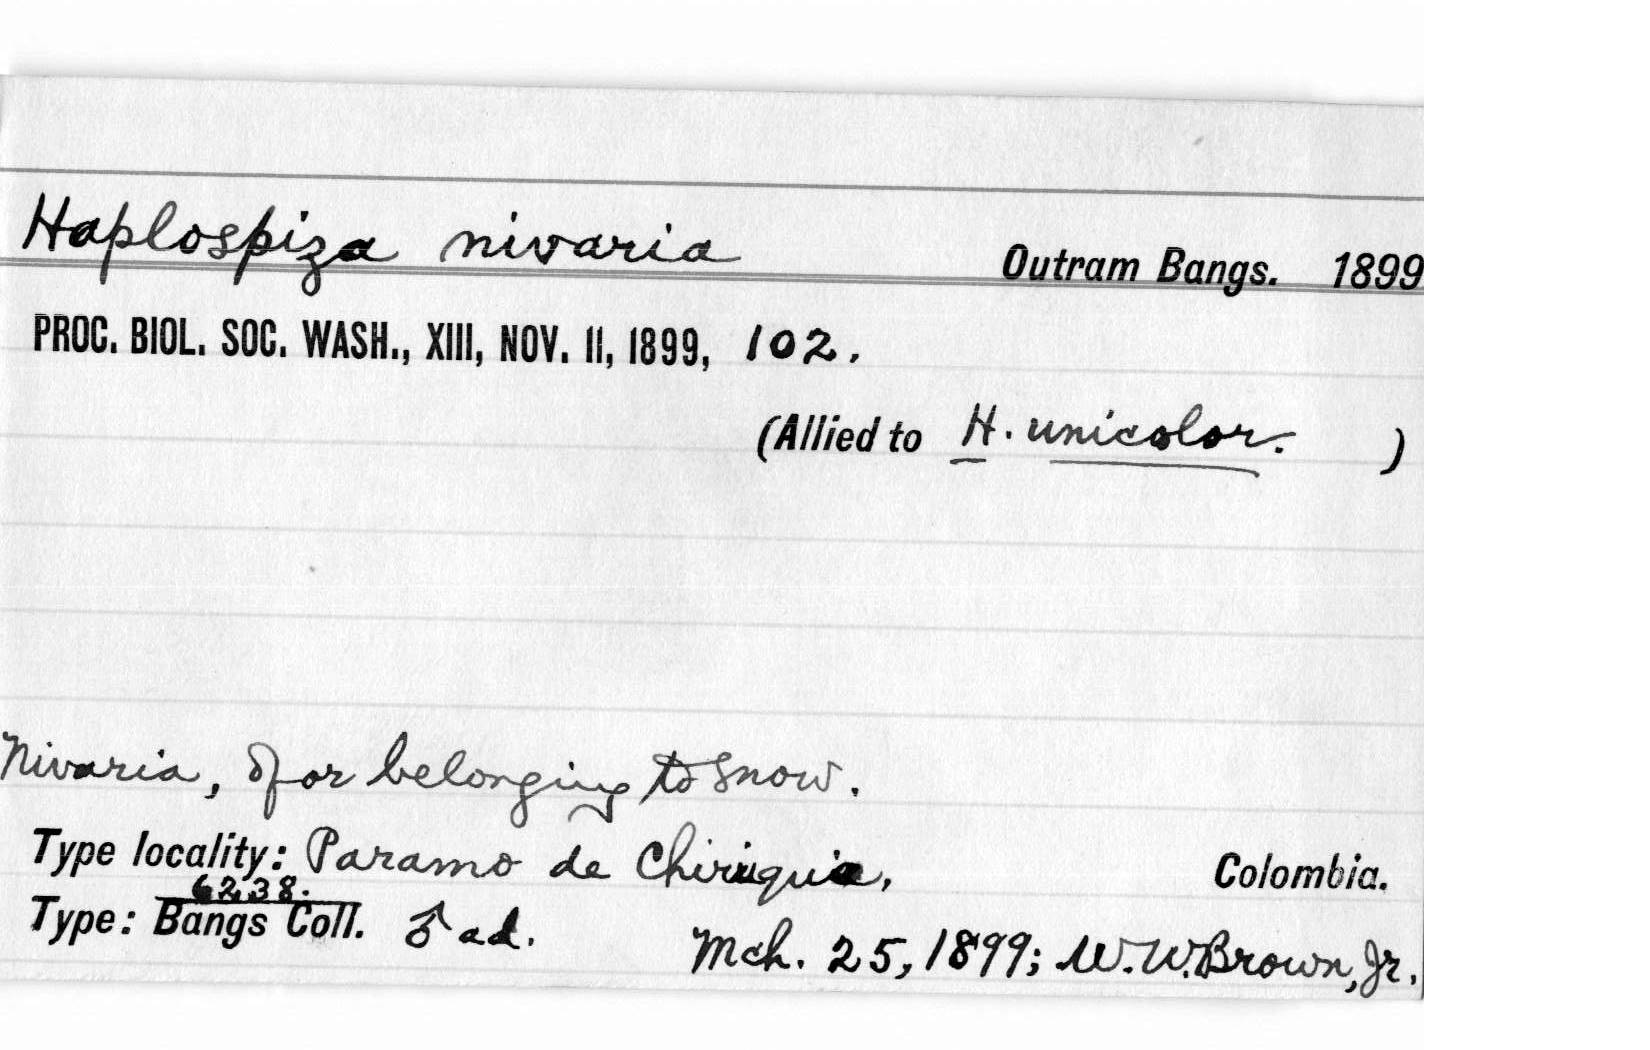 Haplospiza nivaria Outram Bangs. 1899
PROC. BIOL. SOC. WASH., XIII, NOV. 11, 1899, 102.
(Allied to H. unicolor. )
Nivaria, of or belonging to snow.
Type locality: Paramo de Chiriqui, Colombia.
6238.
Type: Bangs Coll. ♂ ad. Mch. 25, 1899; W. W. Brown, Jr.